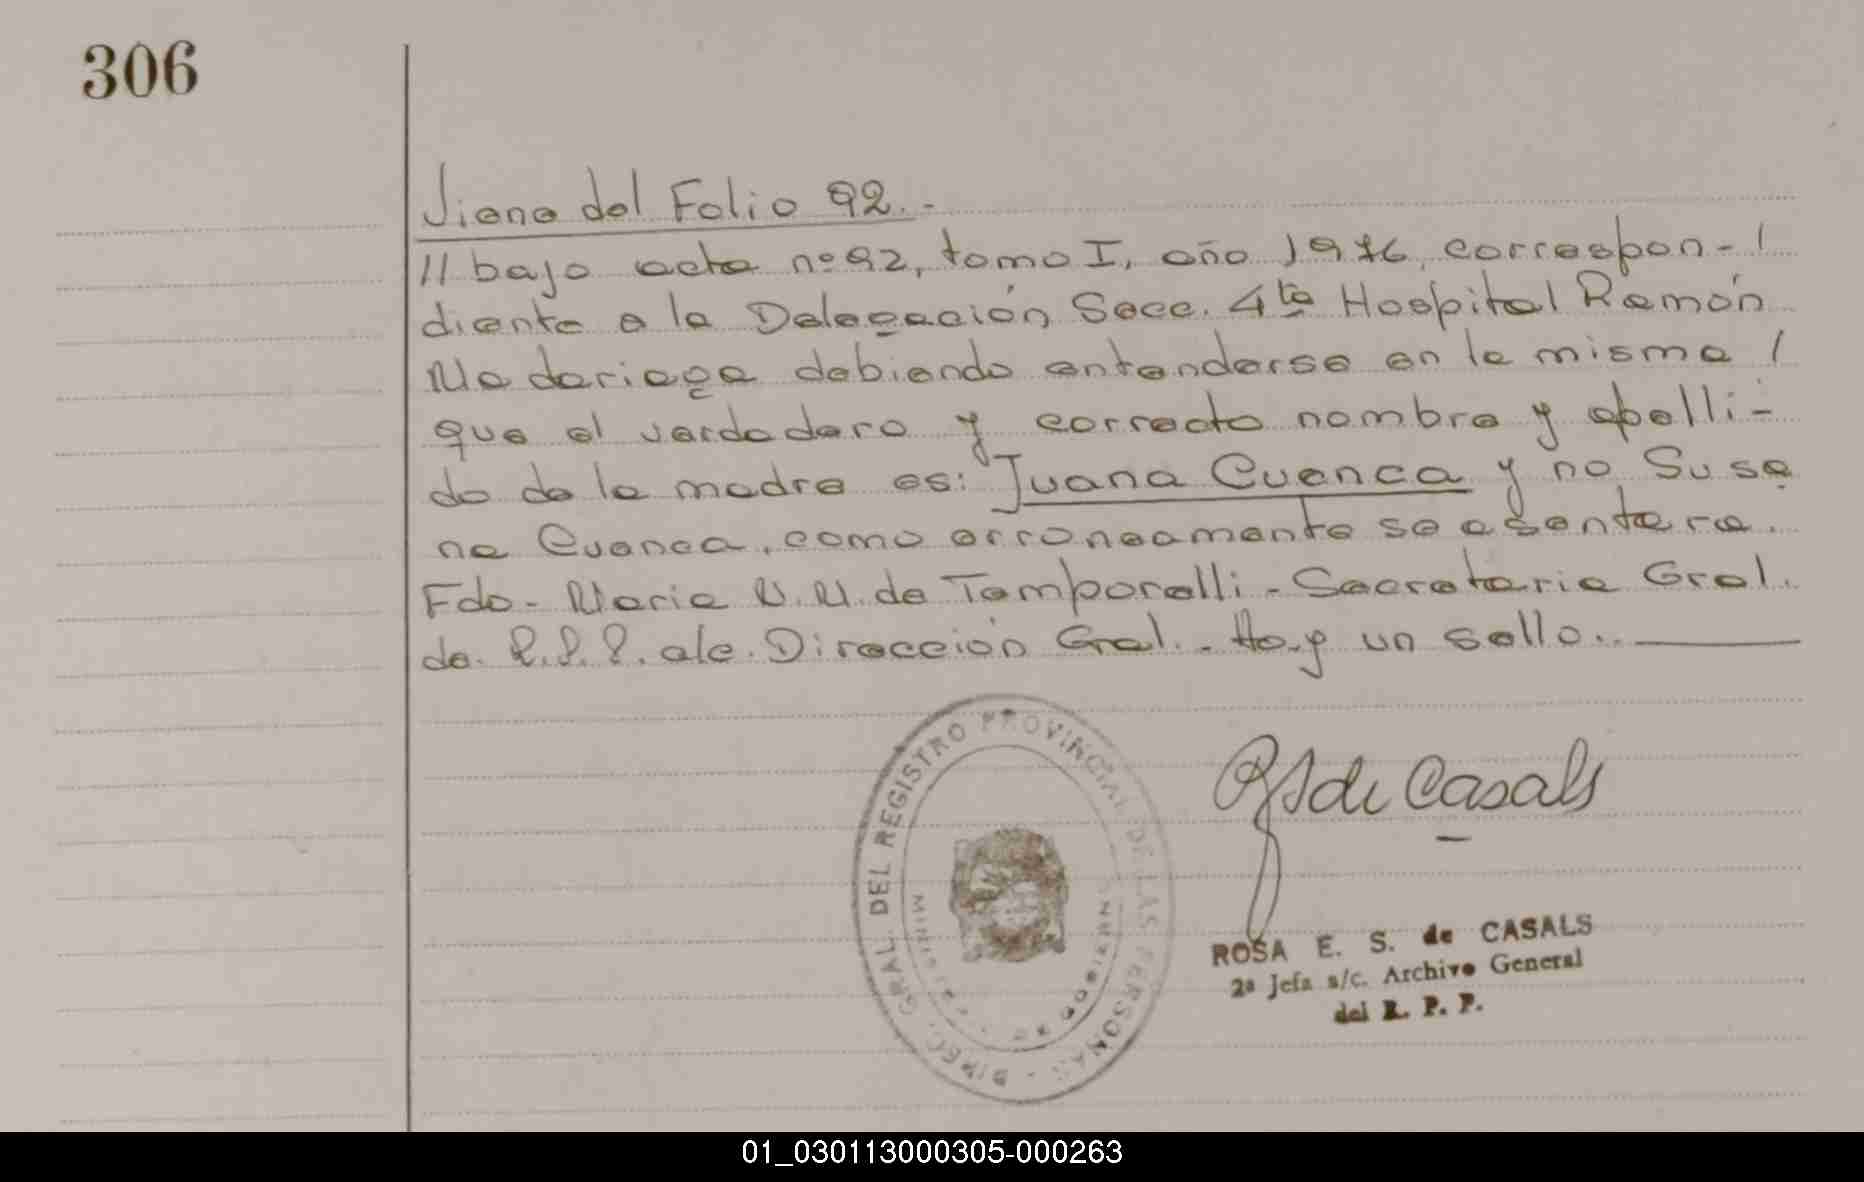 306
Viene del Folio 92.-
// bajo acta nº 92, tomo I, año 1976, correspon-/
diente a la Delegación Secc. 4ta Hospital Ramón
Madariaga debiendo entenderse en la misma /
que el verdadero y correcto nombre y apelli-
do de la madre es: Juana Cuenca y no Susa
na Cuenca, como erroneamente se asentara.
Fdo- Maria N. M. de Temporelli - Secretaria Gral.
de. R.P.P. a/c. Dirección Gral.- Hay un sello.
DIREC. GRAL. DEL REGISTRO PROVINCIAL DE LAS PERSONAS
R S de Casals
ROSA E. S. de CASALS
2ª Jefa s/c. Archivo General
del R. P. P.
01_030113000305-000263